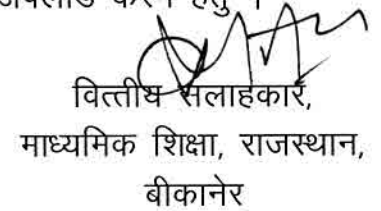 अपलोड करने हेतु ।
वित्तीय सलाहकार,
माध्यमिक शिक्षा, राजस्थान,
बीकानेर